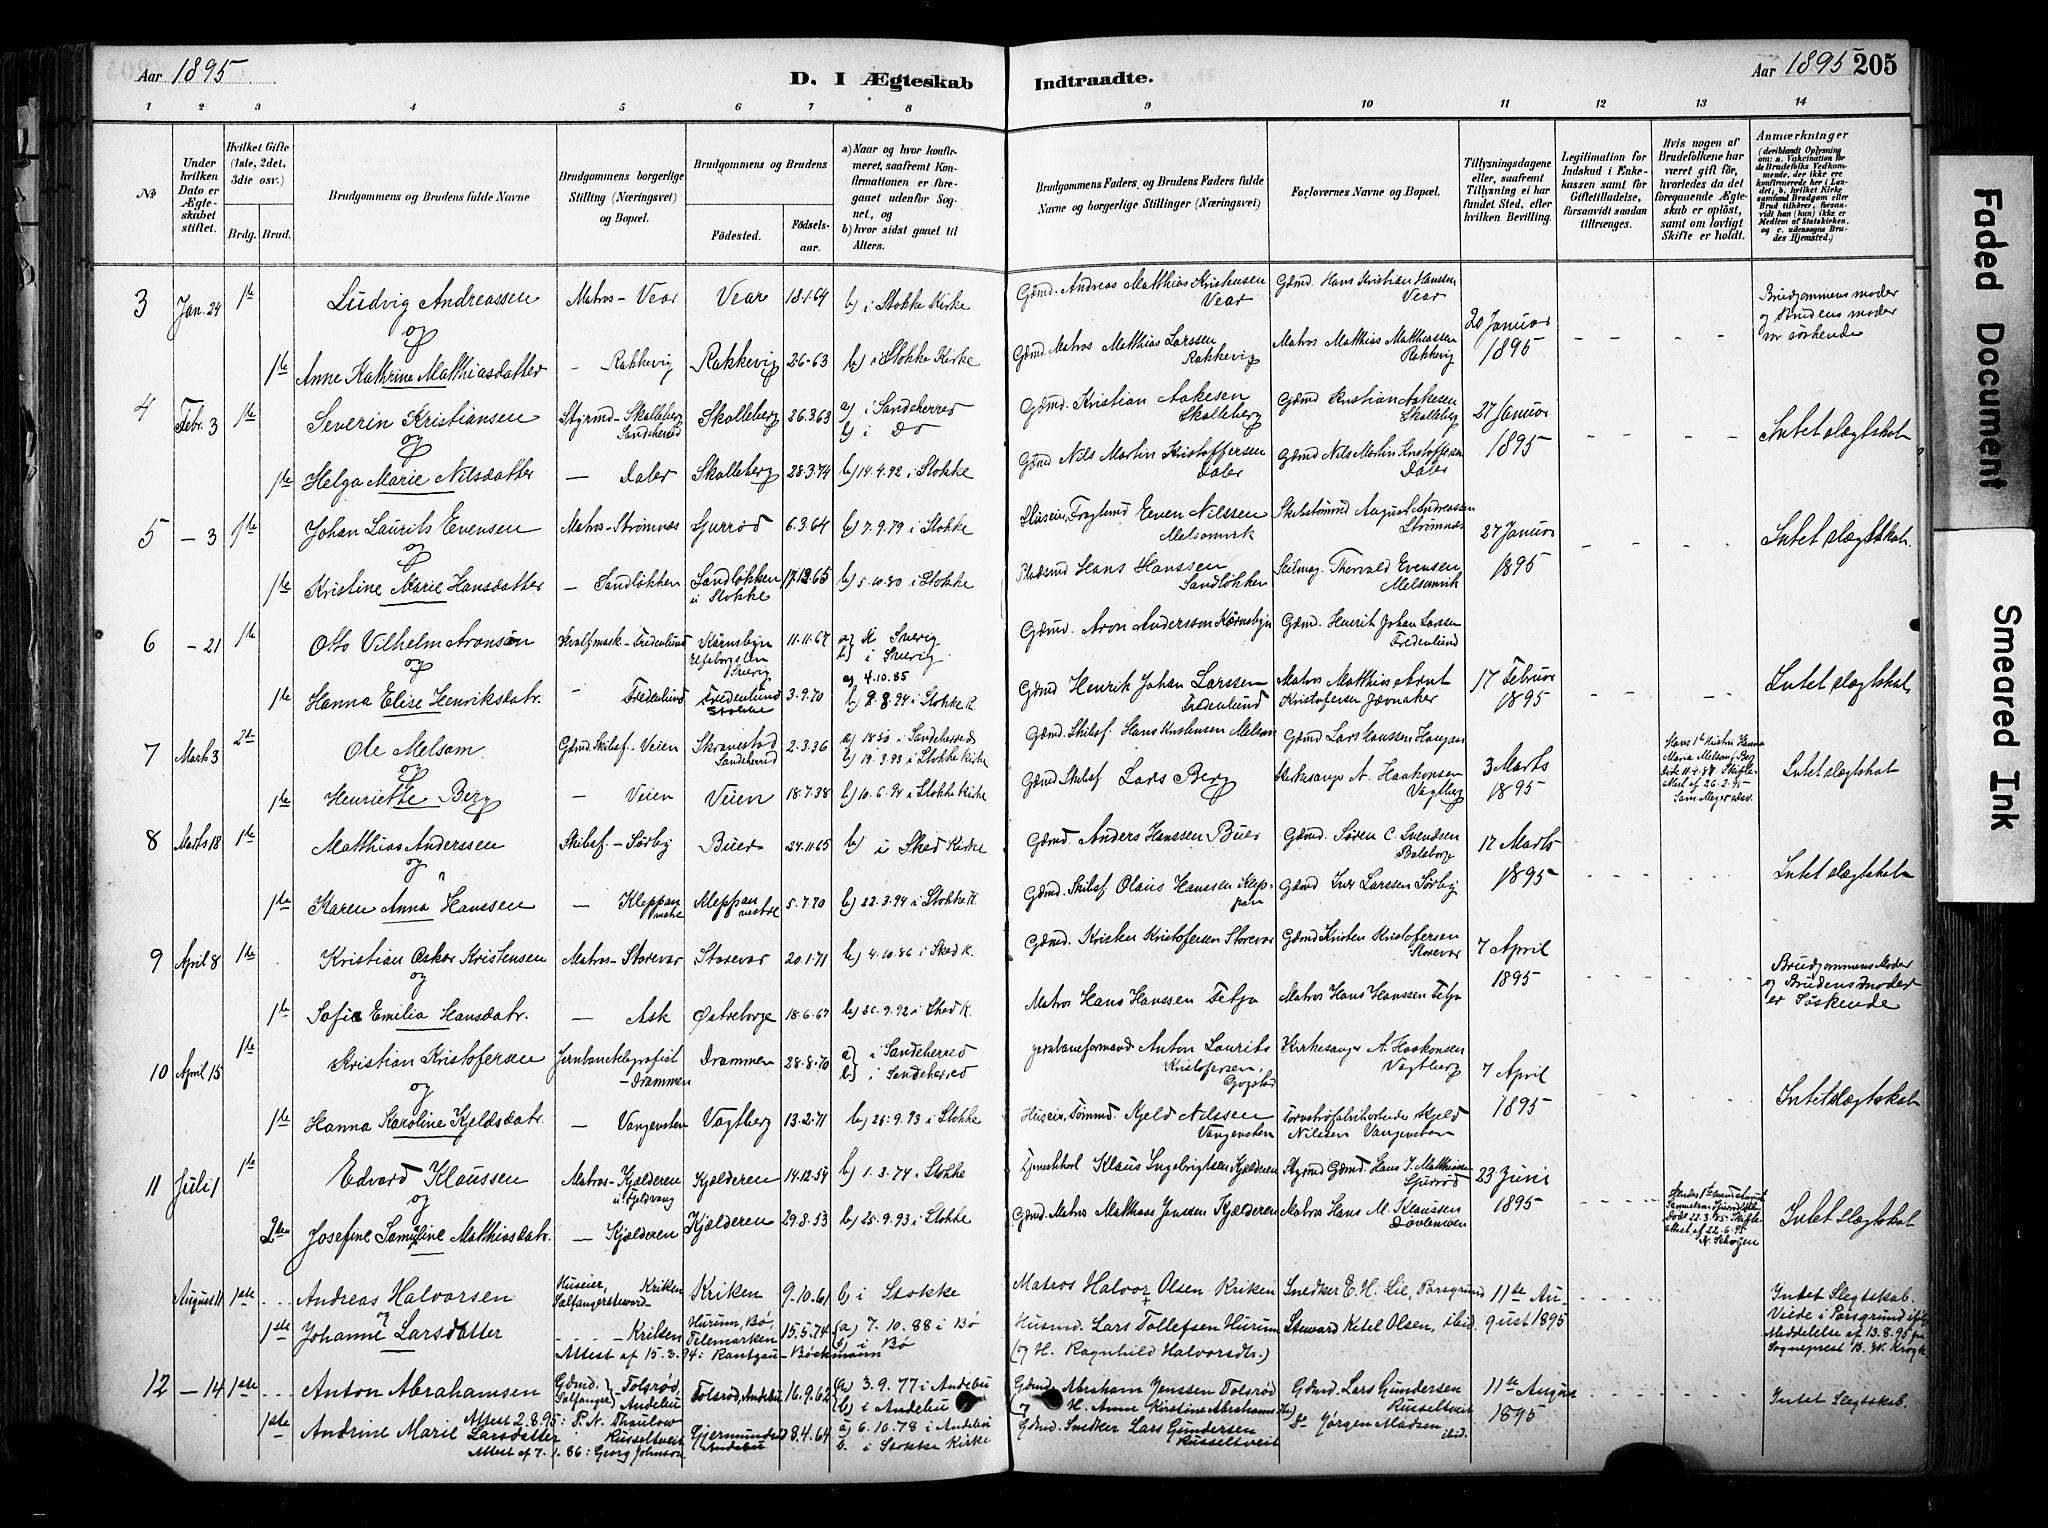 Aar 1895
D. I Ægteskab Indtraadte.
Aar 1895 205
1 2 3 4 5 6 7 8 9 10 11 12 13 14
No
Under hvilken Dato er Ægteskabet stiftet.
Hvilket Gifte (1ste, 2det, 3die osv.)
Brdg. Brud.
Brudgommens og Brudens fulde Navne
Brudgommens borgerlige Stilling (Næringsvei) og Bopæl.
Brudgommens og Brudens
Fødested.
Fødselsaar.
a) Naar og hvor konfirmeret, saafremt Konfirmationen er foregaaet udenfor Sognet, og
b) hvor sidst gaaet til Alters.
Brudgommens Faders og Brudens Faders fulde Navne og borgerlige Stillinger (Næringsvei)
Forlovernes Navne og Bopæl.
Tillysningsdagene eller, saafremt Tillysning ei har fundet Sted, efter hvilken Bevilling.
Legitimation for Indskud i Enkekassen samt for Giftetilladelse, forsaavidt saadan tiltrænges.
Hvis nogen af Brudefolkene har været gift før, hvorledes da det foregaaende Ægteskab er opløst, samt om lovligt Skifte er holdt.
Anmærkninger (deriblandt Oplysning om: a. Vakcination for de Brudefolks Vedkommende, der ikke ere konfirmerede her i Landet; b. hvilket Kirkesamfund Brudgom eller Brud tilhører, forsaavidt han (hun) ikke er Medlem af Statskirken, og c. udensogns Brudes Hjemsted.)
3 Jan. 24 1ste Ludvig Andreassen Matros - Vear Vear 18.1.64 b) i Stokke Kirke Gdmd. Andreas Matthias Kristensen Vear Gdmd. Hans Kristian Hanssen Vear 20 Januar 1895 Brudgommens moder og Brudens moder var søskende
og
1ste Anne Kathrine Matthiasdatter - Rakkevig Rakkevig 26-63 b) i Stokke Kirke Gdmd. Matros Matthias Larssen Rakkevig Matros Matthias Matthiassen Rakkevig
4 Febr. 3 1ste Severin Kristiansen Styrmd - Skalleberg Sandeherred Skalleberg 26.3.63 a) i Sandeherred b) i Do Gdmd. Kristian Aakesen Skalleberg Gdmd Kristian Aakesen Skalleberg 27 Januar 1895 Intet slægtskab
og
1ste Helga Marie Nilsdatter - Daler Skalleberg 28.3.74 b) 14.4.92 i Stokke Gdmd Nils Martin Kristoffersen Daler Gdmd Nils Martin Kristoffersen Daler
5 - 3 1ste Johan Laurits Evensen Matros - Strømnæs Gurrød 6.3.64 b) 7.9.79 i Stokke Huseier, Even Nilssen Melsomvik Skibstømmd August Andreassen Strømnæs 27 Januar 1895 Intet slægtskab.
og
1ste Kristine Marie Hansdatter - Sandløkken Sandløkken i Stokke 17.12.65 b) 5.10.80 i Stokke Pladsmd Hans Hanssen Sandløkken Seilmag. Thorvald Evensen Melsomvik
6 - 21 1ste Otto Vilhelm Aronsøn - Fredenlund Kårnsbyn Elfsborgs Län Sverig 11.11.67 a) i Sverig b) i Sverig Gdmd. Aron Andersson Kårnsbyn Gdmd. Henrik Johan Larssen Fredenlund 17 Februar 1895 Intet slægtskab
og
1ste Hanna Elise Henriksdatr. - Fredenlund Fredenlund Stokke 3.9.70 a) 4.10.85 b) 9.8.94 i Stokke K. Gdmd Henrik Johan Larssen Fredenlund Matros Matthias Arnt Kristofersen Jævnaker
7 Marts 3 2det Ole Melsom Gdmd. Skibsf. - Veien Skravestad Sandeherred 2.3.36 a) 1850 i Sandeherred b) 19.3.93 i Stokke Kirke Gdmd. Skibsf. Hans Kristensen Melsom Gdmd Lars Hanssen Haugan 3 Marts 1895 Hans 1ste Hustru Hanna Maria Melsom f. Berg døde 11.4.87. Skifteattest af 26.2.95 Intet slægtskab
og
1ste Henriette Berg - Veien Veien 18.7.38 b) 10.6.94 i Stokke Kirke Gdmd Skibsf Lars Berg Kirkesanger A. Haakonsen Vagtberg
8 Marts 18 1ste Matthias Anderssen Skibsf - Sørby Buer 24.11.65 b) i Skee Kirke Gdmd. Anders Hanssen Buer Gdmd. Søren C. Svendsen 17 Marts 1895 Intet slægtskab
og
1ste Karen Anna Hanssen - Kleppan vestre Kleppan vestre 5.7.70 b) 22.3.94 i Stokke K. Gdmd. Skibsf Olaus Hanssen Kleppan Gdmd Iver Larssen Sørby
9 April 8 1ste Kristian Oskar Kristensen Matros - Storevar Storevar 20.1.71 b) 4.10.86 i Skee K. Gdmd. Kristen Kristofersen Storevar Gdmd Kristen Kristofersen Storevar 7 April 1895 Brudgommens Moder og Brudens moder er Søskende
og
1ste Sofie Emilia Hansdatr. - Ask Østreborge 18.6.67 b) 30.9.92 i Skee K. Matros Hans Hanssen Felja Matros Hans Hanssen Felja
10 April 15 1ste Kristian Kristofersen Jernbanetelegrafist - Drammen Drammen 28.8.70 a) i Sandeherred b) i Sandeherred Jernbaneformand Anton Laurits Kristofersen, Gogstad Kirkesanger A. Haakonsen Vagtberg 7 April 1895 Intet slægtskab
og
1ste Hanna Karoline Kjeldsdatr. - Vangensten Vagtberg 13.2.71 b) 25.9.93 i Stokke Huseier, Tømmd. Kjeld Nilssen Vangensten Kjeld Nilssen Vangensten
11 Juli 1 1ste Edvard Klaussen Matros - Kjælderen i Fjeldvang Kjælderen 14.12.59 b) 1.3.74 i Stokke Klaus Ingebrigtsen Kjælderen Styrmd Gdmd. Hans J. Matthiassen Gjurrød 23 Juni 1895 Intet Slægtskab
og
2den Josefine Samuline Matthiasdatr. - Kjælderen Kjælderen 29.8.53 b) 25.9.93 i Stokke Gdmd. Matros Matthias Jenssen Kjælderen Matros Hans M. Klaussen
August 11 1ste Andreas Halvorsen Huseier, Sælfangerstuard - Kriken Kriken 9.10.61 b) i Stokke Matros Halvor Olsen Kriken Snedker E. H. Lie, Porsgrund 11te August 1895 Intet Slegtskab. Viede i Porsgrund ifølge Meddelelse af 13.8.95 fra Sogneprest B. W. Krogh
1ste Johanne Larsdatter - Kriken Hurum, Bø, Telemarken 15.5.74 (a) 7.10.88 i Bø (b) i Bø Husmd. Lars Tollefsen Hurum Steward Ketel Olsen, ibid.
Attest af 15.3.94: Rantzau-Böckmann (og H. Ragnhild Halvorsdtr.)
12 - 14 1ste Anton Abrahamsen Gdmd. Sælfanger - Tolsrød Andebu Tolsrød, Andebu 16.9.62 (a) 3.9.77 i Andebu (b) i Andebu Gdmd. Abraham Jenssen Tolsrød og H. Anne Kirstine Abrahamsdtr. Gdmd. Lars Gundersen Russeltveit 11te August 1895 Intet Slegtskab.
Attest 2.8.95: P. N. Thaulow
1ste Andrine Marie Larsdatter Russeltveit Gjermundrød Andebu 8.4.64 a) 6.10.78 i Andebu b. i Stokke Kirke Gdmd. Snedker Lars Gundersen Russeltveit Do Jørgen Madsen ibid.
Attest af 7.1.86: Georg Johnson
Faded Document
Smeared Ink